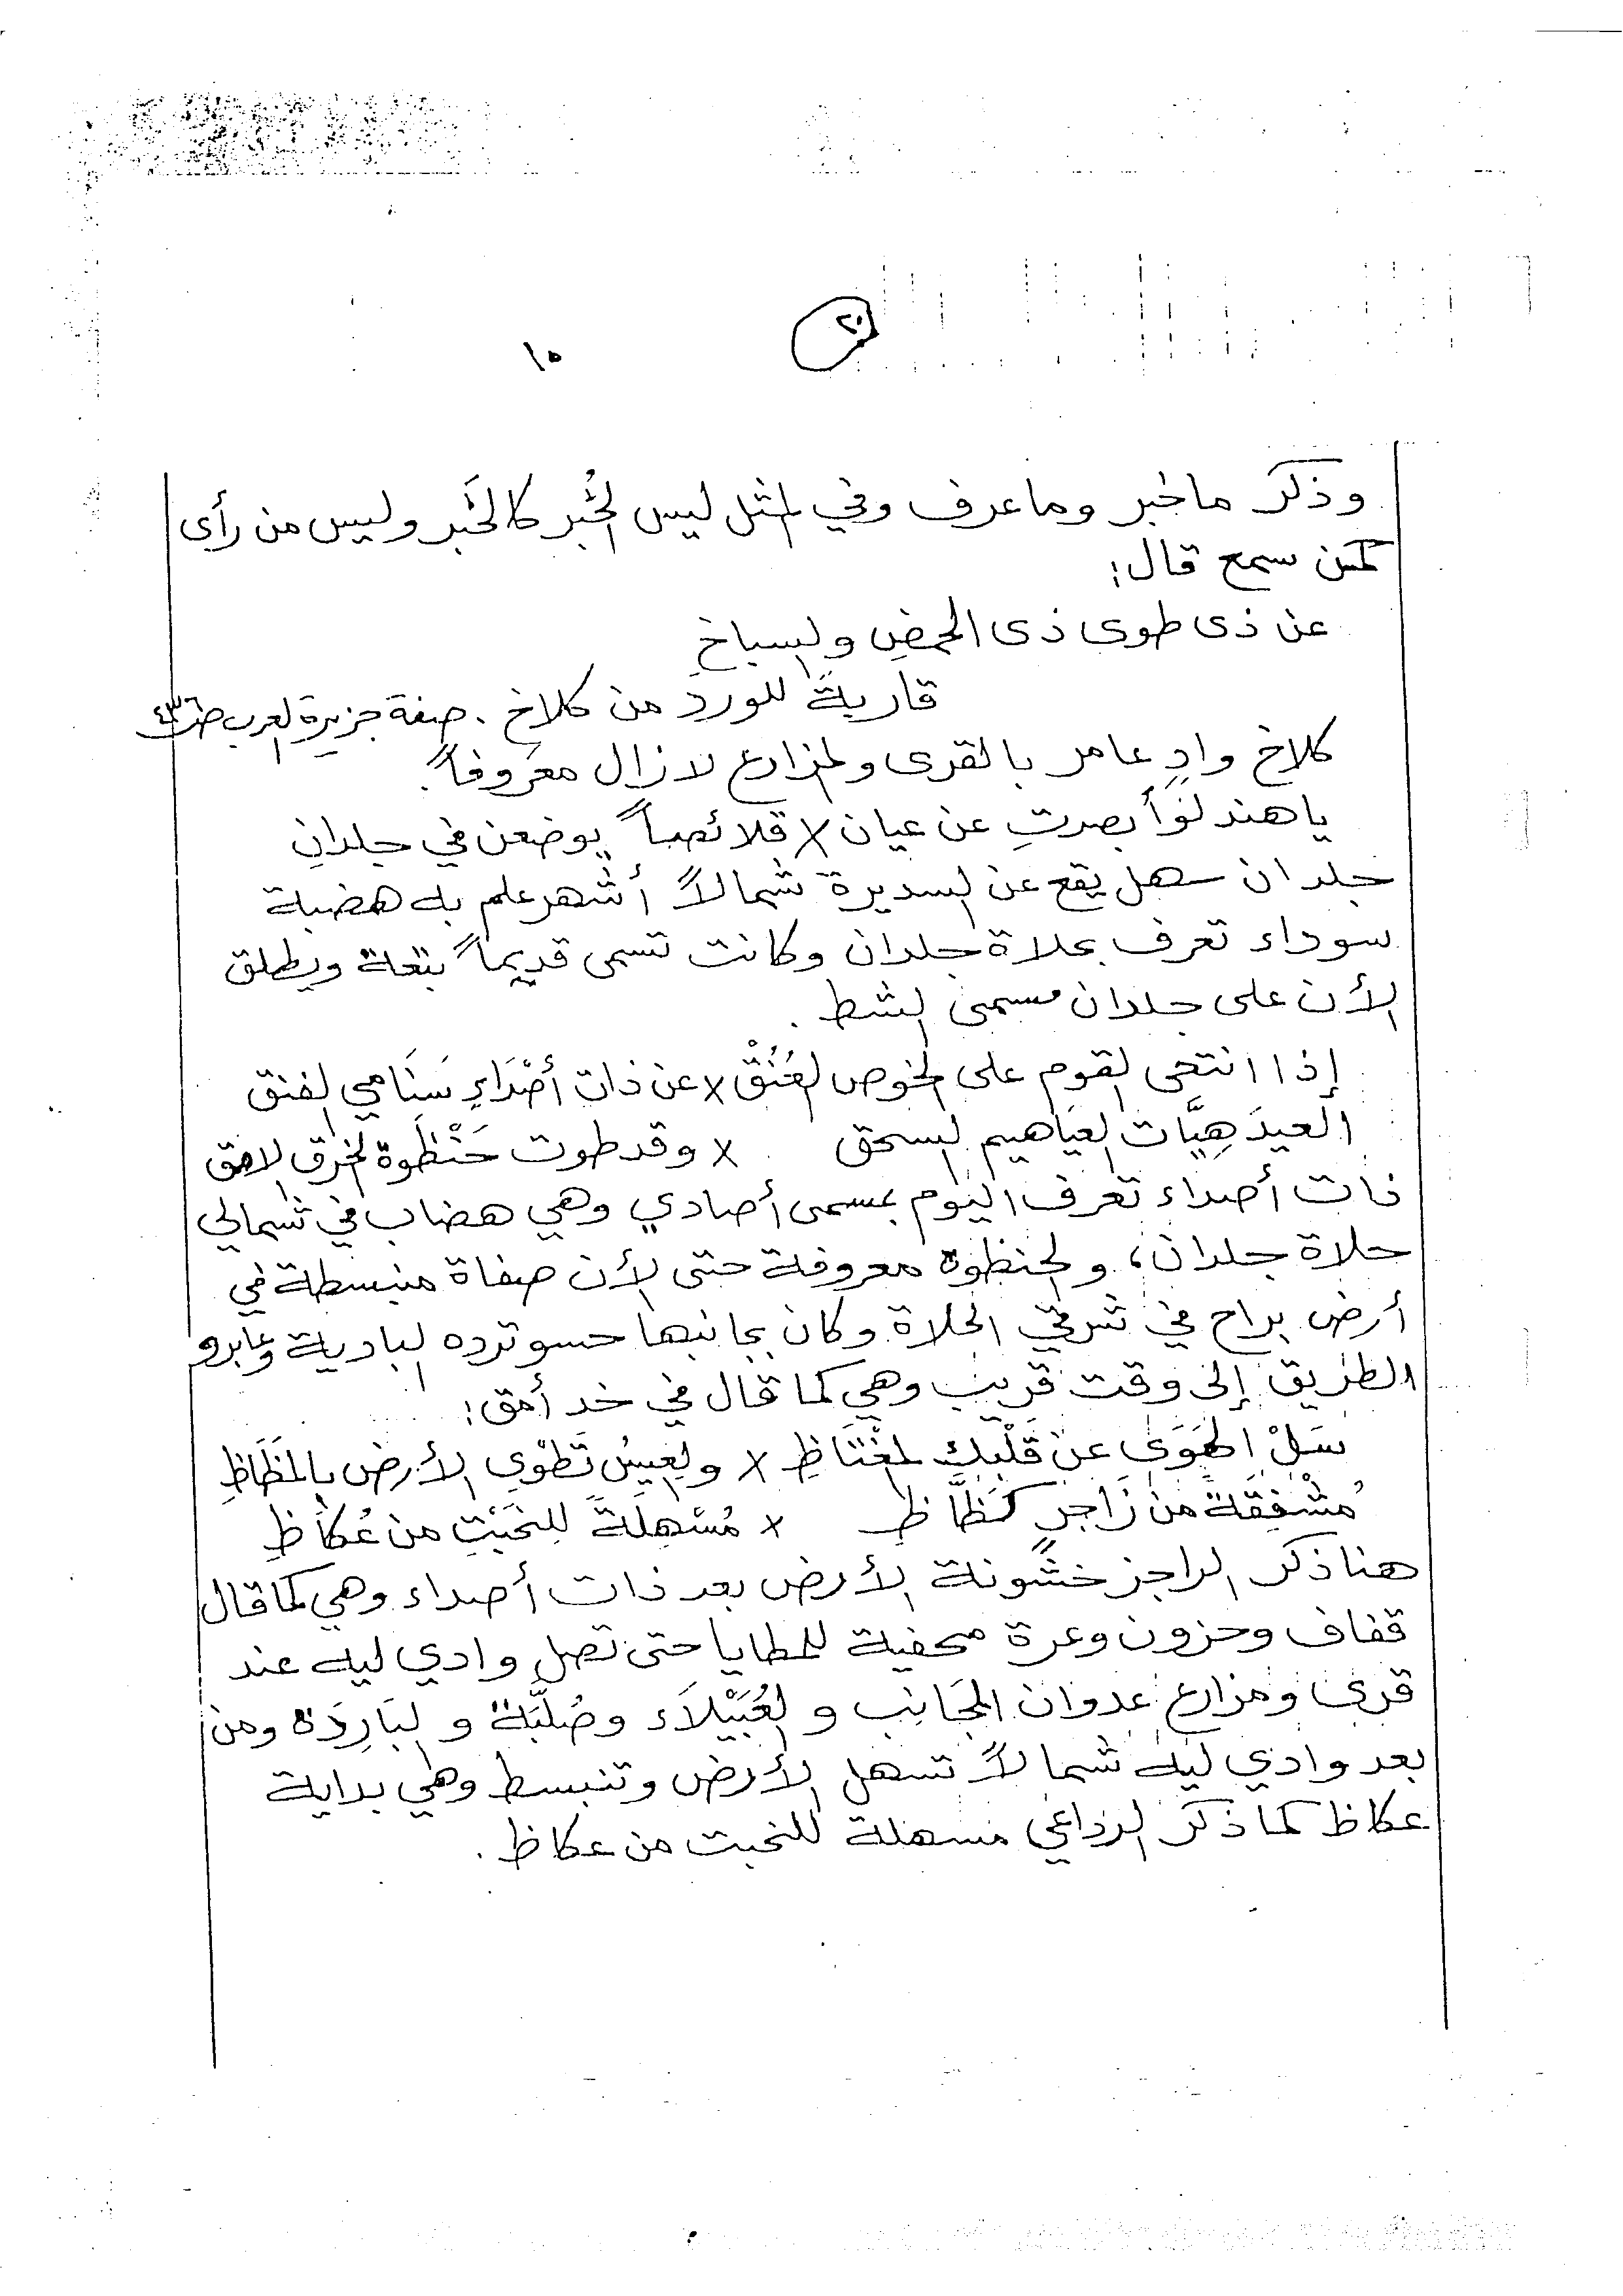 ٢٠
١٥
وذكر ما خبر وما عرف وفي المثل ليس الخُبر كالخَبر وليس من رأى
كمن سمع قال:
عن ذى طوى ذى الحمضِ والسباخِ
قاريةً للورد من كلاخ . صفة جزيرة العرب
كلاخ وادٍ عامر بالقرى والمزارع لازال معروفاً.
ياهند لو أبصرتِ عن عيان × قلائصاً يوضعن في جلدانِ
جلدان سهل يقع عن السديرة شمالاً أشهر علم به هضبة
سوداء تعرف بحلاة جلدان وكانت تسمى قديماً بتعة ويطلق
الأن على جلدان مسمى الشط .
إذا انتحى القوم على الخوص العُنُقْ × عن ذات أصْدَاءٍ سَنَامي الفنق
العيدَهِيَّات العَياهيم السحق × وقد طوت حَنْظَوة الخرق الامق
ذات أصداء تعرف اليوم بمسمى أصادي وهي هضاب في شمالي
حلاة جلدان، والحنظوه معروفة حتى الأن صفاة منبسطة في
أرض براح في شرقي الحلاة وكان بجانبها حسو ترده البادية وعابرو
الطريق إلى وقت قريب وهي كما قال في خد أمق:
سَلْ الهَوَى عن قَلْبِكِ المغْتَاظِ × والعِيسُ تَطْوِي الأرض بالمَظَاظِ
مُشْفِقَةً من زَاجرٍ كَظَّاظِ × مُسْهِلَةً للخَبْتِ من عُكاظِ
هنا ذكر الراجز خشونة الأرض بعد ذات أصداء وهي كما قال
قفاف وحزون وعرة محفية للمطايا حتى تصل وادي ليه عند
قرى ومزارع عدوان المجَانِب والعُبَيْلاَء وصُلبَّة والبَارِدَه ومن
بعد وادي ليه شمالاً تسهل الأرض وتنبسط وهي بداية
عكاظ كما ذكر الرداعي مسهلة للخبت من عكاظ .